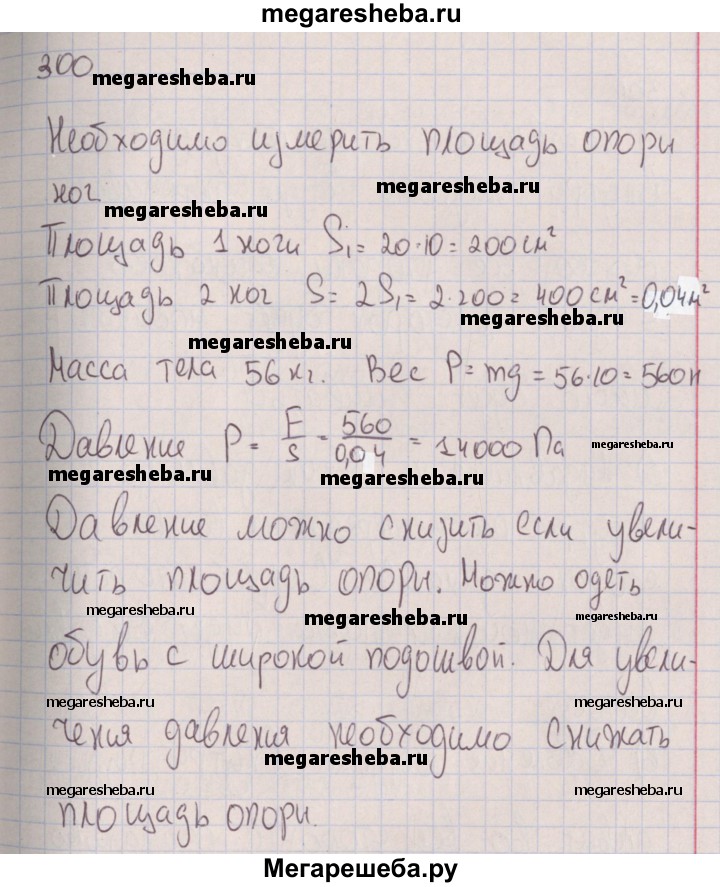 megaresheba.ru
300
megaresheba.ru
Необходимо измерить площадь опори
megaresheba.ru
ног
megaresheba.ru
Площадь 1 ноги S₁ = 20·10 = 200 см²
Площадь 2 ног S = 2S₁ = 2·200 = 400 см² = 0,04 м²
megaresheba.ru
megaresheba.ru
Масса тела 56 кг. Вес P = mg = 56·10 = 560 Н
Давление P = F/S = 560/0,04 = 14000 Па
megaresheba.ru
megaresheba.ru
megaresheba.ru
Давление можно снизить если увели-
чить площадь опори. Можно одеть
megaresheba.ru
megaresheba.ru
megaresheba.ru
обувь с широкой подошвой. Для увели-
megaresheba.ru
megaresheba.ru
чения давления необходимо снижать
megaresheba.ru
megaresheba.ru
megaresheba.ru
площадь опори.
Мегарешеба.ру